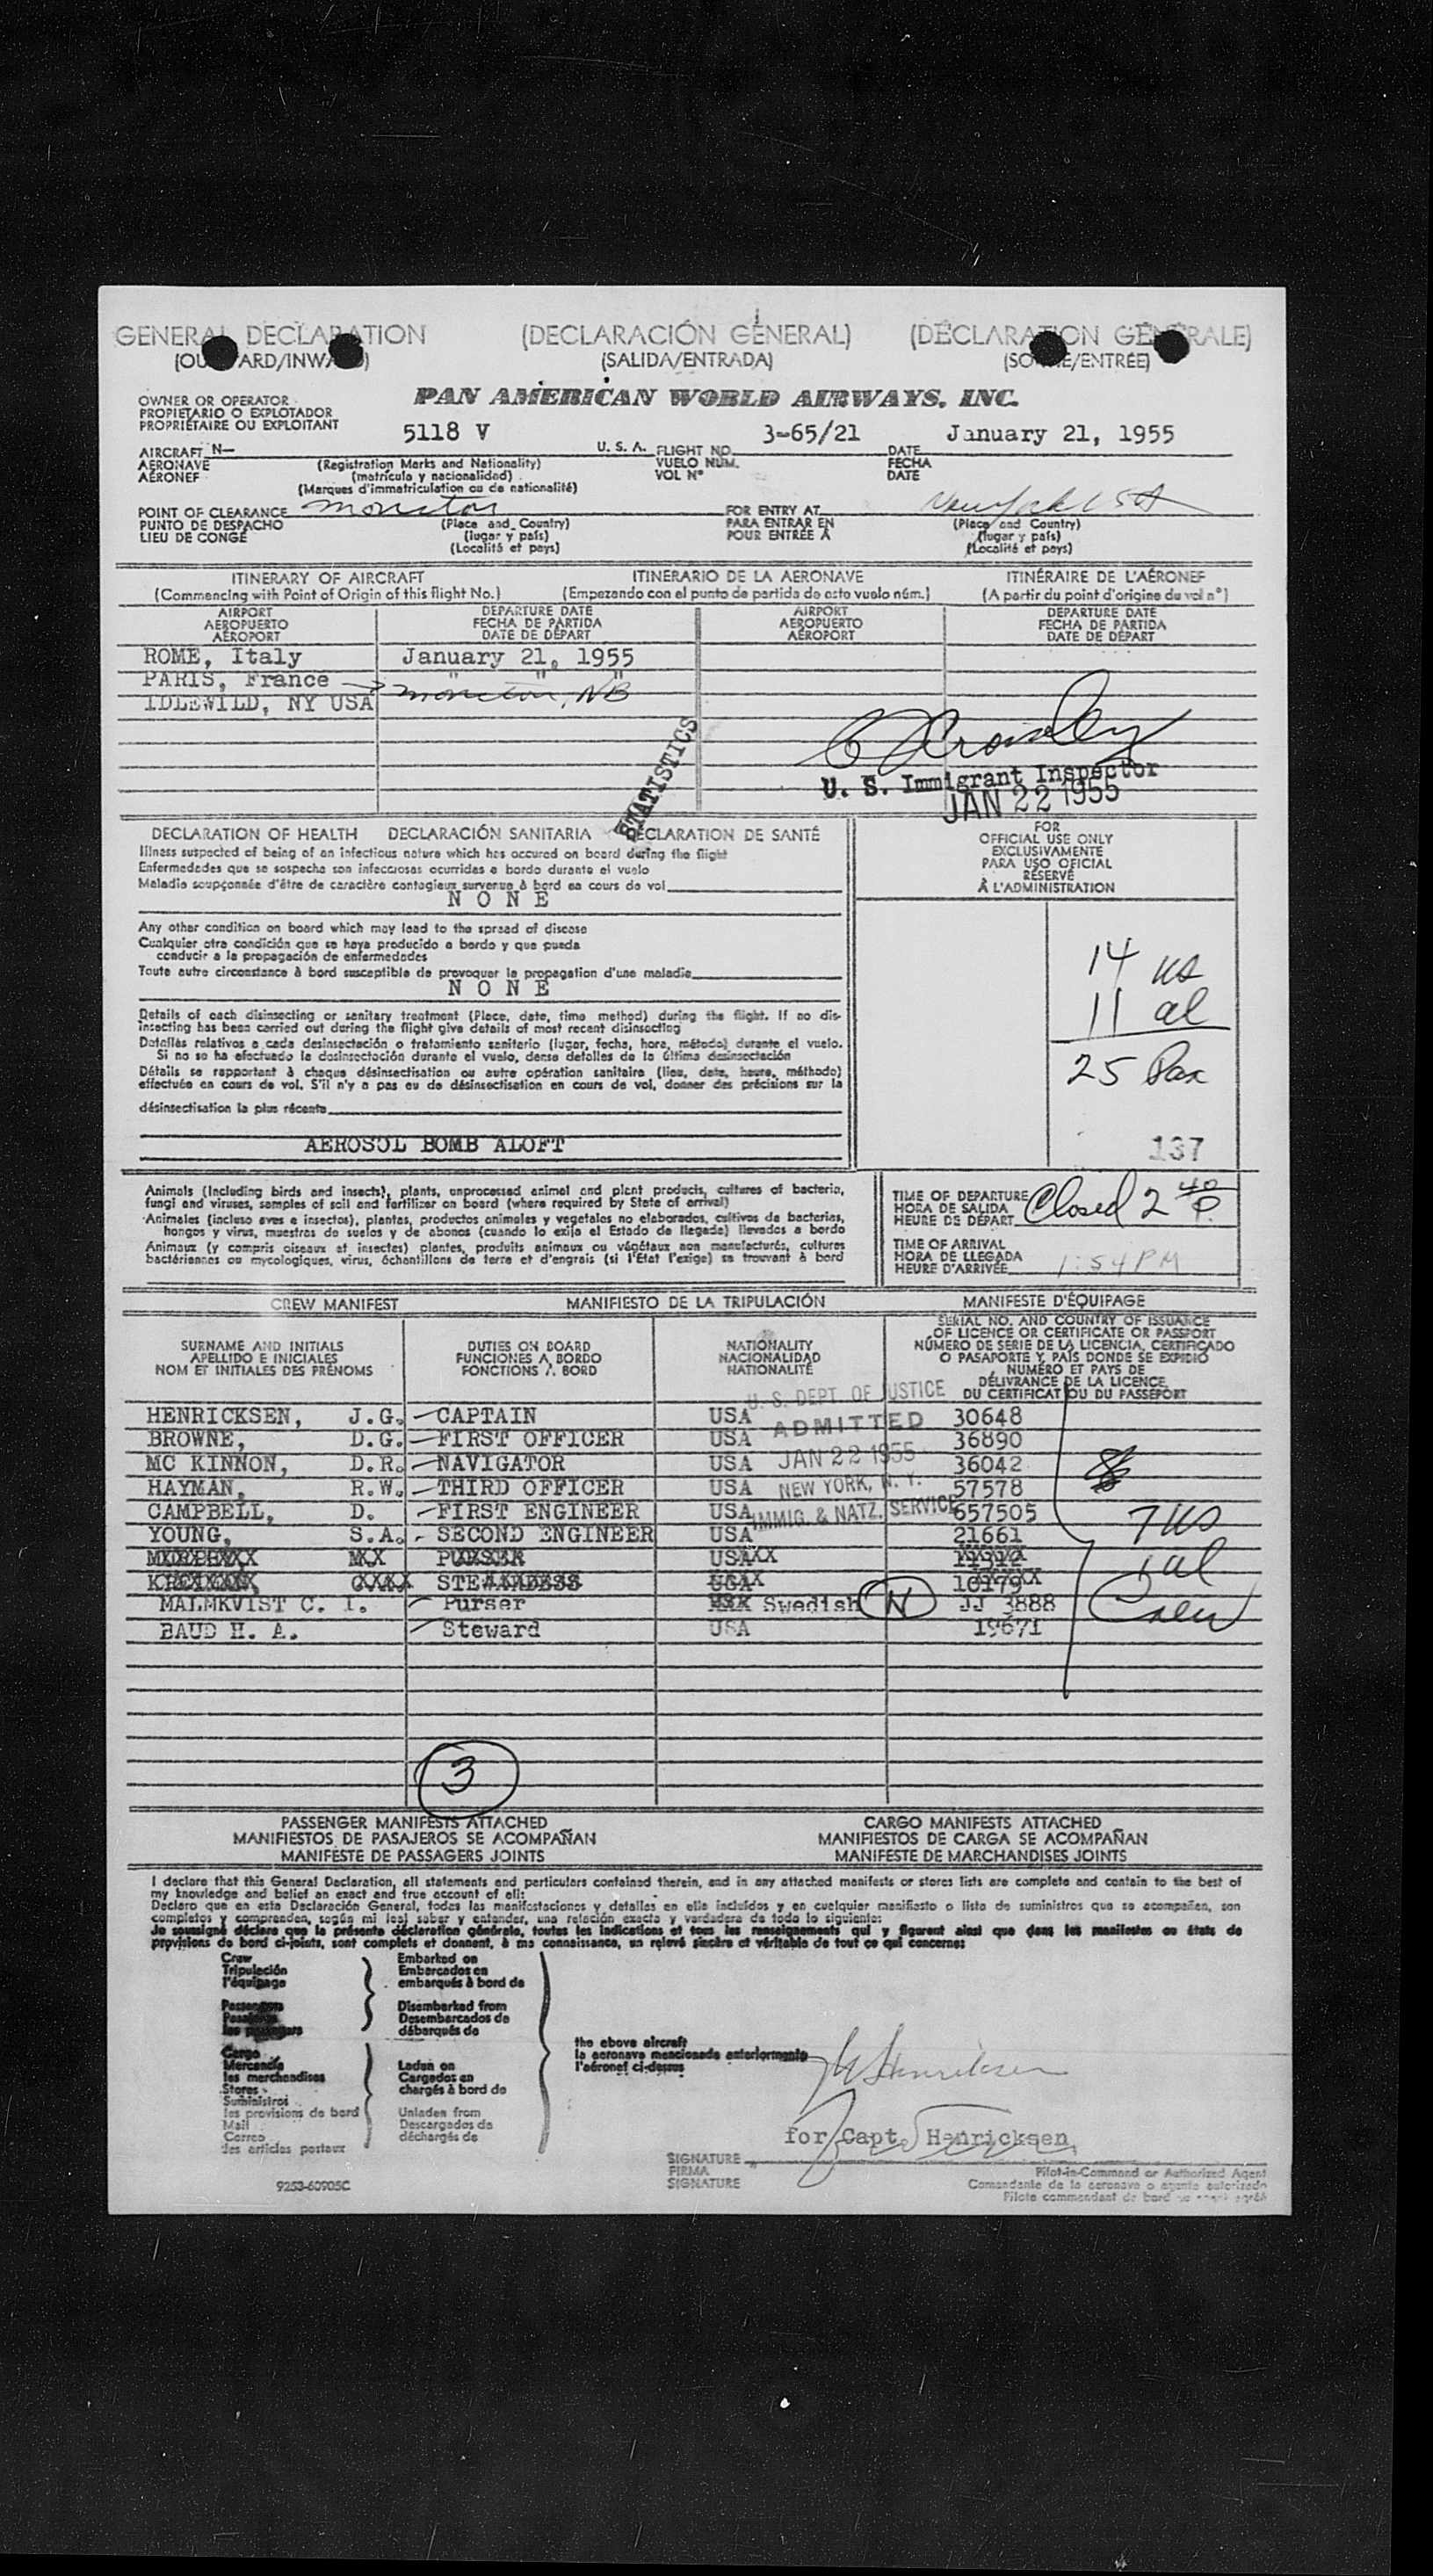 GENERAL DECLARATION (DECLARACIÓN GENERAL) (DÉCLARATION GÉNÉRALE)
(OU ARD/INWA ) (SALIDA/ENTRADA) (SO E/ENTRÉE)
OWNER OR OPERATOR
PROPIETARIO O EXPLOTADOR
PROPRIÉTAIRE OU EXPLOITANT
PAN AMERICAN WORLD AIRWAYS, INC.
5118 V 3-65/21 January 21, 1955
AIRCRAFT N— U. S. A. FLIGHT NO. DATE
AERONAVE (Registration Marks and Nationality) VUELO NÚM. FECHA
AÉRONEF (matrícula y nacionalidad) VOL Nº DATE
(Marques d'immatriculation ou de nationalité)
POINT OF CLEARANCE Moncton FOR ENTRY AT New York USA
PUNTO DE DESPACHO (Place and Country) PARA ENTRAR EN (Place and Country)
LIEU DE CONGÉ (lugar y país) POUR ENTRÉE À (lugar y país)
(Localité et pays) (Localité et pays)
ITINERARY OF AIRCRAFT ITINERARIO DE LA AERONAVE ITINÉRAIRE DE L'AÉRONEF
(Commencing with Point of Origin of this flight No.) (Empezando con el punto de partida de este vuelo núm.) (A partir du point d'origine du vol nº)
AIRPORT DEPARTURE DATE AIRPORT DEPARTURE DATE
AEROPUERTO FECHA DE PARTIDA AEROPUERTO FECHA DE PARTIDA
AÉROPORT DATE DE DÉPART AÉROPORT DATE DE DÉPART
ROME, Italy January 21, 1955
PARIS, France " " "
Moncton, NB
IDLEWILD, NY USA
STATISTICS
U. S. Immigrant Inspector
JAN 22 1955
DECLARATION OF HEALTH DECLARACIÓN SANITARIA DECLARATION DE SANTÉ
Illness suspected of being of an infectious nature which has occured on board during the flight
Enfermedades que se sospecha son infecciosas ocurridas a bordo durante el vuelo
Maladie soupçonnée d'être de caractère contagieux survenue à bord en cours de vol
N O N E
Any other condition on board which may lead to the spread of disease
Cualquier otra condición que se haya producido a bordo y que pueda
conducir a la propagación de enfermedades
Toute autre circonstance à bord susceptible de provoquer la propagation d'une maladie
N O N E
Details of each disinsecting or sanitary treatment (Place, date, time method) during the flight. If no dis-
insecting has been carried out during the flight give details of most recent disinsecting
Detalles relativos a cada desinsectación o tratamiento sanitario (lugar, fecha, hora, método) durante el vuelo.
Si no se ha efectuado la desinsectación durante el vuelo, dense detalles de la última desinsectación
Détails se rapportant à chaque désinsectisation ou autre opération sanitaire (lieu, date, heure, méthode)
effectuée en cours de vol. S'il n'y a pas eu de désinsectisation en cours de vol, donner des précisions sur la
désinsectisation la plus récente
AEROSOL BOMB ALOFT
FOR
OFFICIAL USE ONLY
EXCLUSIVAMENTE
PARA USO OFICIAL
RÉSERVÉ
À L'ADMINISTRATION
14 us
11 al
25 Pax
137
Animals (Including birds and insects), plants, unprocessed animal and plant products, cultures of bacteria,
fungi and viruses, samples of soil and fertilizer on board (where required by State of arrival)
Animales (incluso aves e insectos), plantas, productos animales y vegetales no elaborados, cultivos de bacterias,
hongos y virus, muestras de suelos y de abonos (cuando lo exija el Estado de llegada) llevados a bordo
Animaux (y compris oiseaux et insectes) plantes, produits animaux ou végétaux non manufacturés, cultures
bactériennes ou mycologiques, virus, échantillons de terre et d'engrais (si l'État l'exige) se trouvant à bord
TIME OF DEPARTURE
HORA DE SALIDA
HEURE DE DÉPART Closed 2 40 P.
TIME OF ARRIVAL
HORA DE LLEGADA
HEURE D'ARRIVÉE 1:54 PM
CREW MANIFEST MANIFIESTO DE LA TRIPULACIÓN MANIFESTE D'ÉQUIPAGE
SURNAME AND INITIALS
APELLIDO E INICIALES
NOM ET INITIALES DES PRÉNOMS
DUTIES ON BOARD
FUNCIONES A BORDO
FONCTIONS À BORD
NATIONALITY
NACIONALIDAD
NATIONALITÉ
SERIAL NO. AND COUNTRY OF ISSUANCE
OF LICENCE OR CERTIFICATE OR PASSPORT
NÚMERO DE SERIE DE LA LICENCIA, CERTIFICADO
O PASAPORTE Y PAÍS DONDE SE EXPIDIÓ
NUMÉRO ET PAYS DE
DÉLIVRANCE DE LA LICENCE,
DU CERTIFICAT OU DU PASSEPORT
U. S. DEPT. OF JUSTICE
ADMITTED
JAN 22 1955
NEW YORK, N. Y.
IMMIG. & NATZ. SERVICE
HENRICKSEN, J.G. CAPTAIN USA 30648
BROWNE, D.G. FIRST OFFICER USA 36890
MC KINNON, D.R. NAVIGATOR USA 36042
HAYMAN, R.W. THIRD OFFICER USA 57578
CAMPBELL, D. FIRST ENGINEER USA 657505
YOUNG, S.A. SECOND ENGINEER USA 21661
PURSER USA
STEWARDESS USA 10179
MALMKVIST C. I. Purser Swedish N JJ 3888
BAUD H. A. Steward USA 19671
7 us
1 al
Crew
3
PASSENGER MANIFESTS ATTACHED CARGO MANIFESTS ATTACHED
MANIFIESTOS DE PASAJEROS SE ACOMPAÑAN MANIFIESTOS DE CARGA SE ACOMPAÑAN
MANIFESTE DE PASSAGERS JOINTS MANIFESTE DE MARCHANDISES JOINTS
I declare that this General Declaration, all statements and particulars contained therein, and in any attached manifests or stores lists are complete and contain to the best of
my knowledge and belief an exact and true account of all:
Declaro que en esta Declaración General, todas las manifestaciones y detalles en ella incluidos y en cualquier manifiesto o lista de suministros que se acompañen, son
completos y comprenden, según mi leal saber y entender, una relación exacta y verdadera de todo lo siguiente:
Je soussigné déclare que la présente déclaration générale, toutes les indications et tous les renseignements qui y figurent ainsi que dans les manifestes ou états de
provisions de bord ci-joints, sont complets et donnent, à ma connaissance, un relevé sincère et véritable de tout ce qui concerne:
Crew Embarked on
Tripulación Embarcados en
l'équipage embarqués à bord de
Passengers Disembarked from
Pasajeros Desembarcados de
les passagers débarqués de
Cargo
Mercancía Laden on
les merchandises Cargados en
Stores chargés à bord de
Suministros
les provisions de bord Unladen from
Mail Descargados de
Correo déchargés de
des articles postaux
the above aircraft
la aeronave mencionada anteriormente
l'aéronef ci-dessus
JG Henricksen
for Capt. Henricksen
SIGNATURE
FIRMA
SIGNATURE
Pilot-in-Command or Authorized Agent
Comandante de la aeronave o agente autorizado
Pilote commandant de bord ou agent agréé
9253-60905C